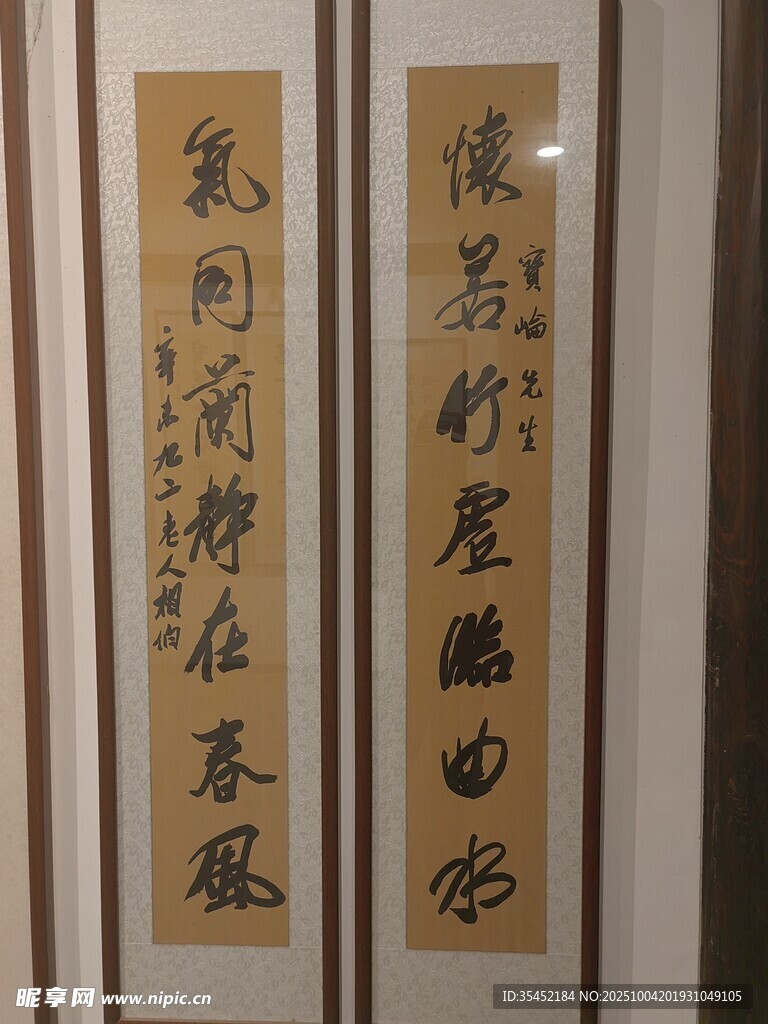 懷若竹虛臨曲水
寶崘先生
氣同蘭靜在春風
辛未九二老人相伯
昵享网 www.nipic.cn
ID:35452184 NO:20251004201931049105